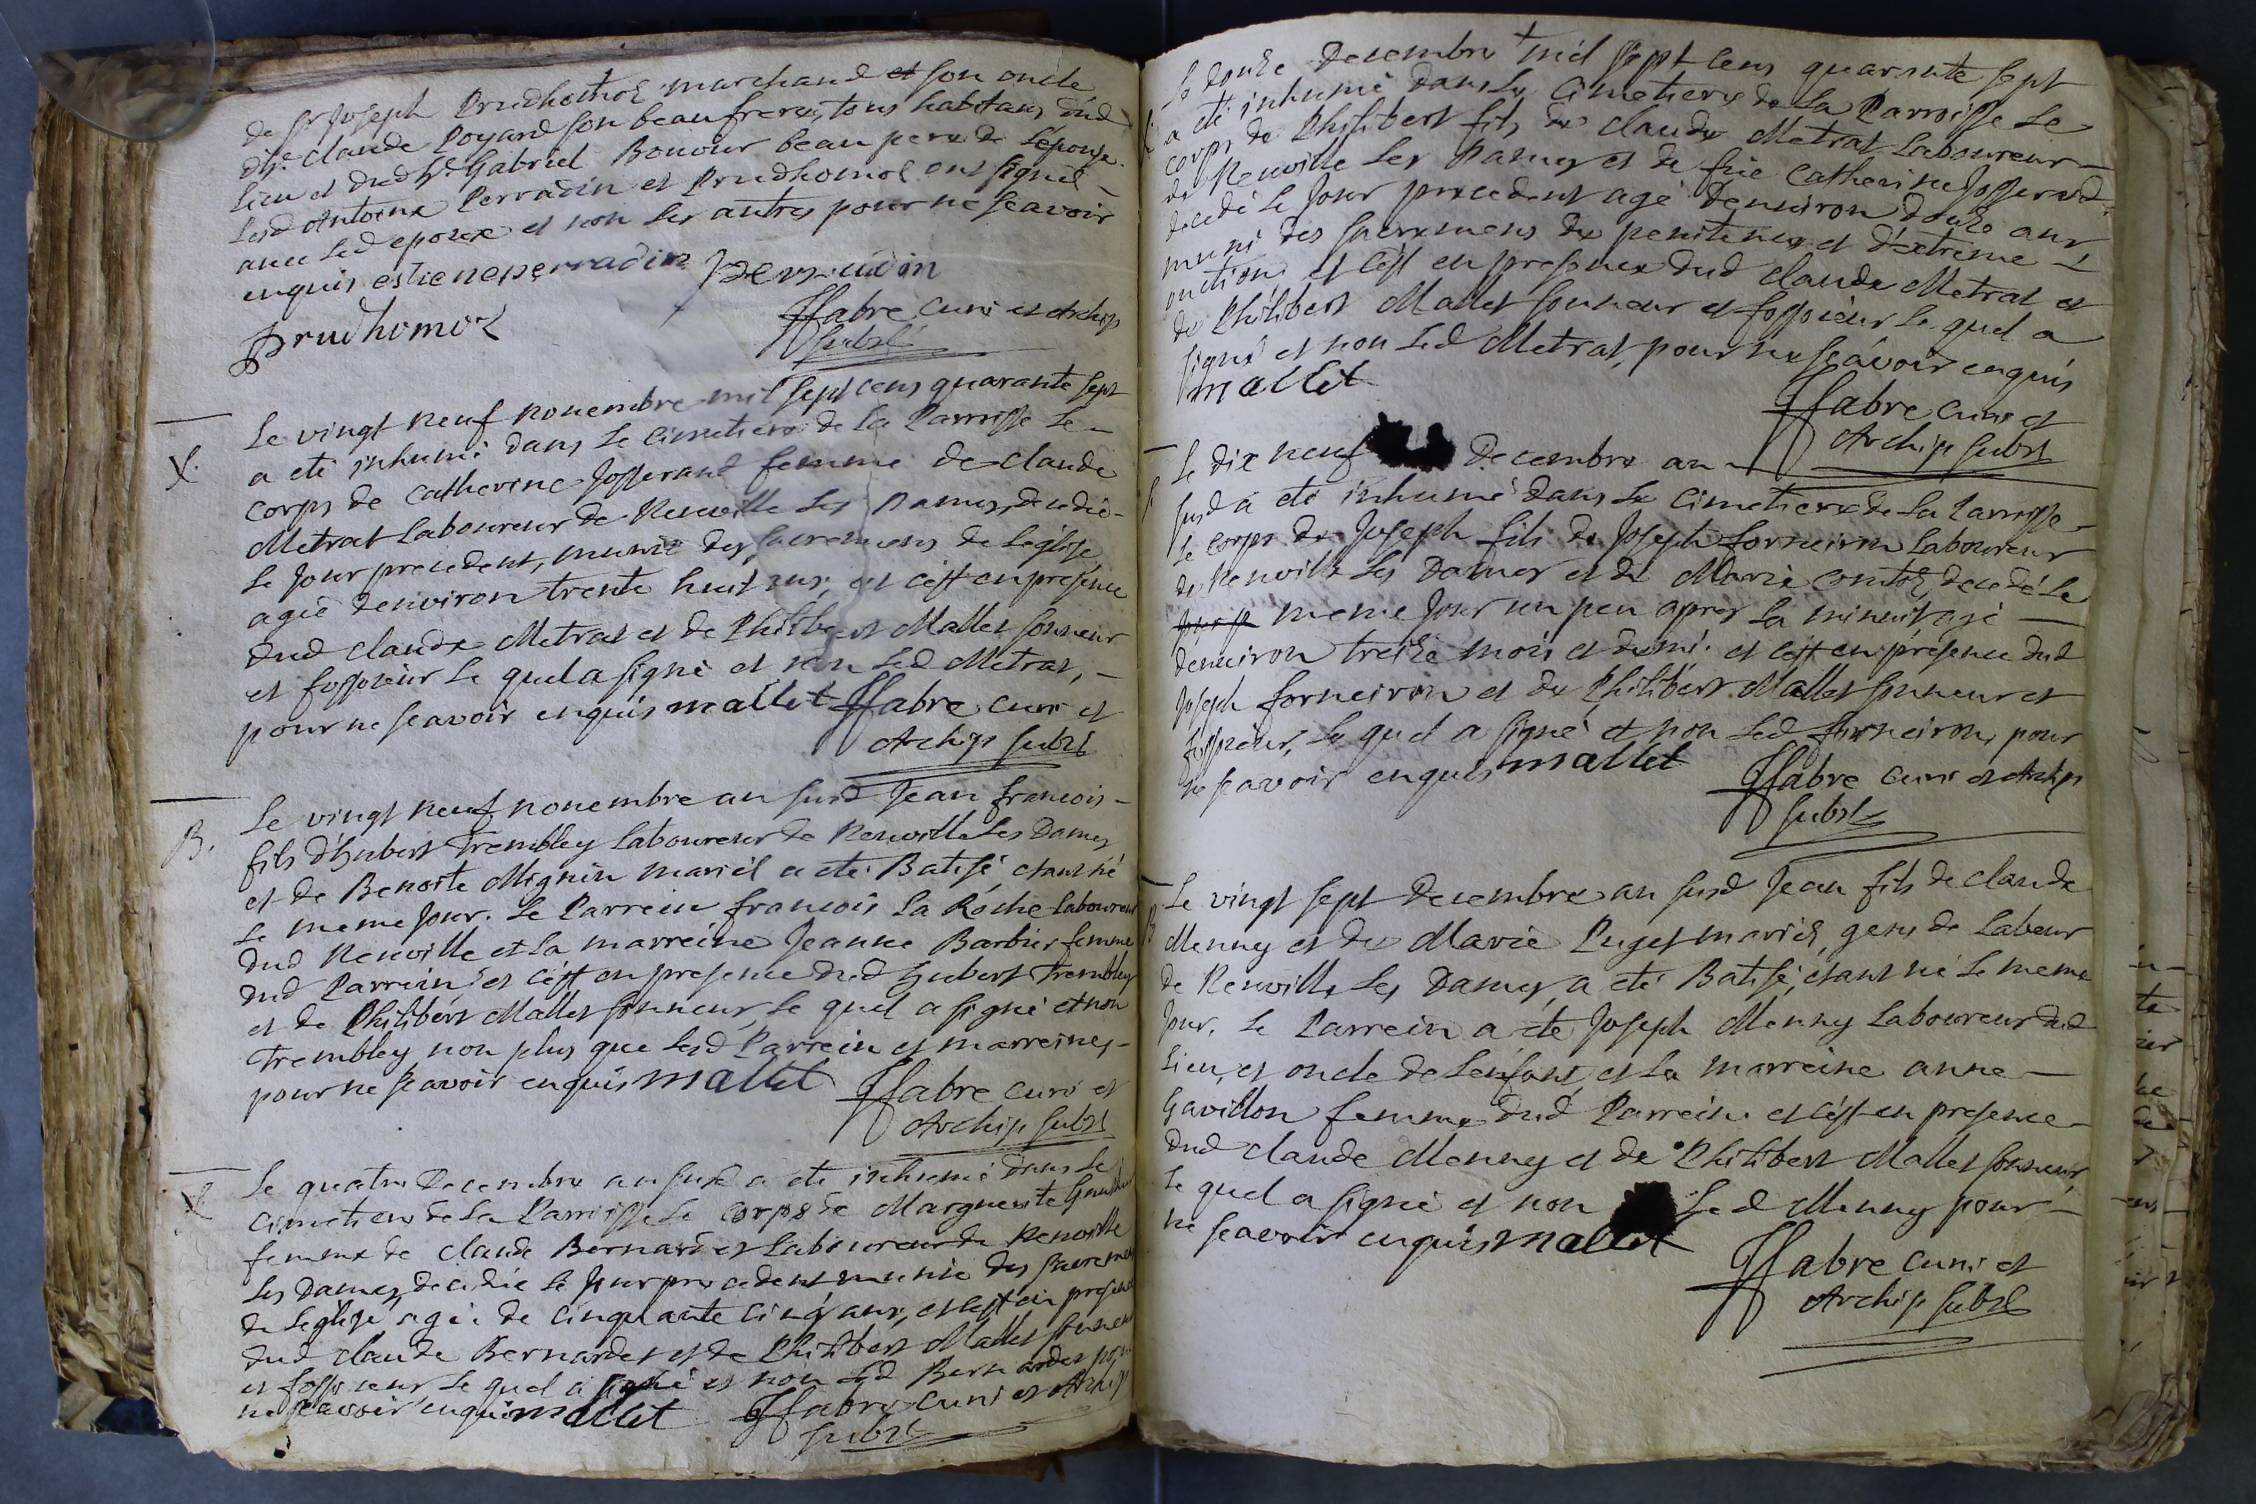 de Sr Joseph Prudhomol marchand et son oncle
de Claude Poyard son beau frere, tous habitans dud
lieu et dud Sr Gabriel Bouour beau pere de l'épouse.
Lesd Antoine Perradin et Prudhomol ont signé
avec led epoux et non les autres pour ne sçavoir
enquis estiene perradin Perradin
Prudhomol ffabre curé et Archip
subst
Le vingt neuf novembre mil sept cens quarante sept
X. a eté inhumé dans le cimetiere de la Parroisse le
corps de Catherine Josserand femme de Claude
Metrat Laboureur de Neuville les Dames, decedée
le jour precedent, munie des sacremens de l'église
agée denviron trente huit ans, et c'est en présence
dud Claude Metrat et de Philibert Mallet sonneur
et fossoieur le quel a signé et non led Metrat,
pour ne sçavoir enquis mallet ffabre curé et
Archip subst
Le vingt neuf novembre an susd Jean francois
B. fils d'hubert Trembley Laboureur de Neuville les Dames
et de Benoite Mignin mariés a eté Batisé, étant né
le meme jour. Le Parrein francois La Roche Laboureur
dud Neuville et la marreine Jeanne Barbier femme
dud Parrein et c'est en presence dud hubert Trembley
et de Philibert Mallet sonneur, le quel a signé et non
Trembley non plus que lesd Parrein et marreine,
pour ne sçavoir enquis mallet ffabre curé et
Archip subst
Le quatre Decembre an susd a eté inhumé dans le
cimetiere de la Parroisse le corps de Marguerite
femme de Claude Bernardet Laboureur de Neuville
les Dames, decedée le jour precedent munie des sacremens
de l'eglise agée de cinquante cinq ans, et c'est en presence
dud Claude Bernardet et de Philibert Mallet sonneur
et fossoieur, le quel a signé et non led Bernardet pour
ne sçavoir enquis mallet ffabre curé et Archip
subst
Le douze Decembre mil sept cens quarante sept
a eté inhumé dans le cimetiere de la Parroisse le
corps de Philibert fils de Claude Metrat Laboureur
de Neuville les Dames et de füe Catherine Josserand
decedé le jour precedent agé denviron douze ans
muni des sacremens de penitence et d'extreme
onction, et c'est en presence dud Claude Metrat et
de Philibert Mallet sonneur et fossoieur le quel a
signé et non led Metrat, pour ne sçavoir enquis
mallet
ffabre curé et
Archip subst
Le dix neuf Decembre an
susd a eté inhumé dans le cimetiere de la Parroisse
le corps de Joseph fils de Joseph forneiron Laboureur
de Neuville les Dames et de Marie Comtet, decedé le
meme jour un peu apres la minuit agé
denviron treize mois et demi. et c'est en présence dud
Joseph forneiron et de Philibert Mallet sonneur et
fossoieur, le quel a signé et non led forneiron, pour
ne sçavoir enquis mallet ffabre curé et Archip
subst
Le vingt sept Decembre an susd Jean fils de Claude
B Menny et de Marie Puget mariés, gens de Labeur
de Neuville les Dames, a eté Batisé, étant né le meme
jour. Le Parrein a eté Joseph Menny Laboureur dud
lieu, et oncle de l'enfant, et la marreine anne
Gavillon femme dud Parrein. et c'est en presence
dud Claude Menny et de Philibert Mallet sonneur,
le quel a signé et non led Menny pour
ne sçavoir enquis mallet
ffabre curé et
Archip subst